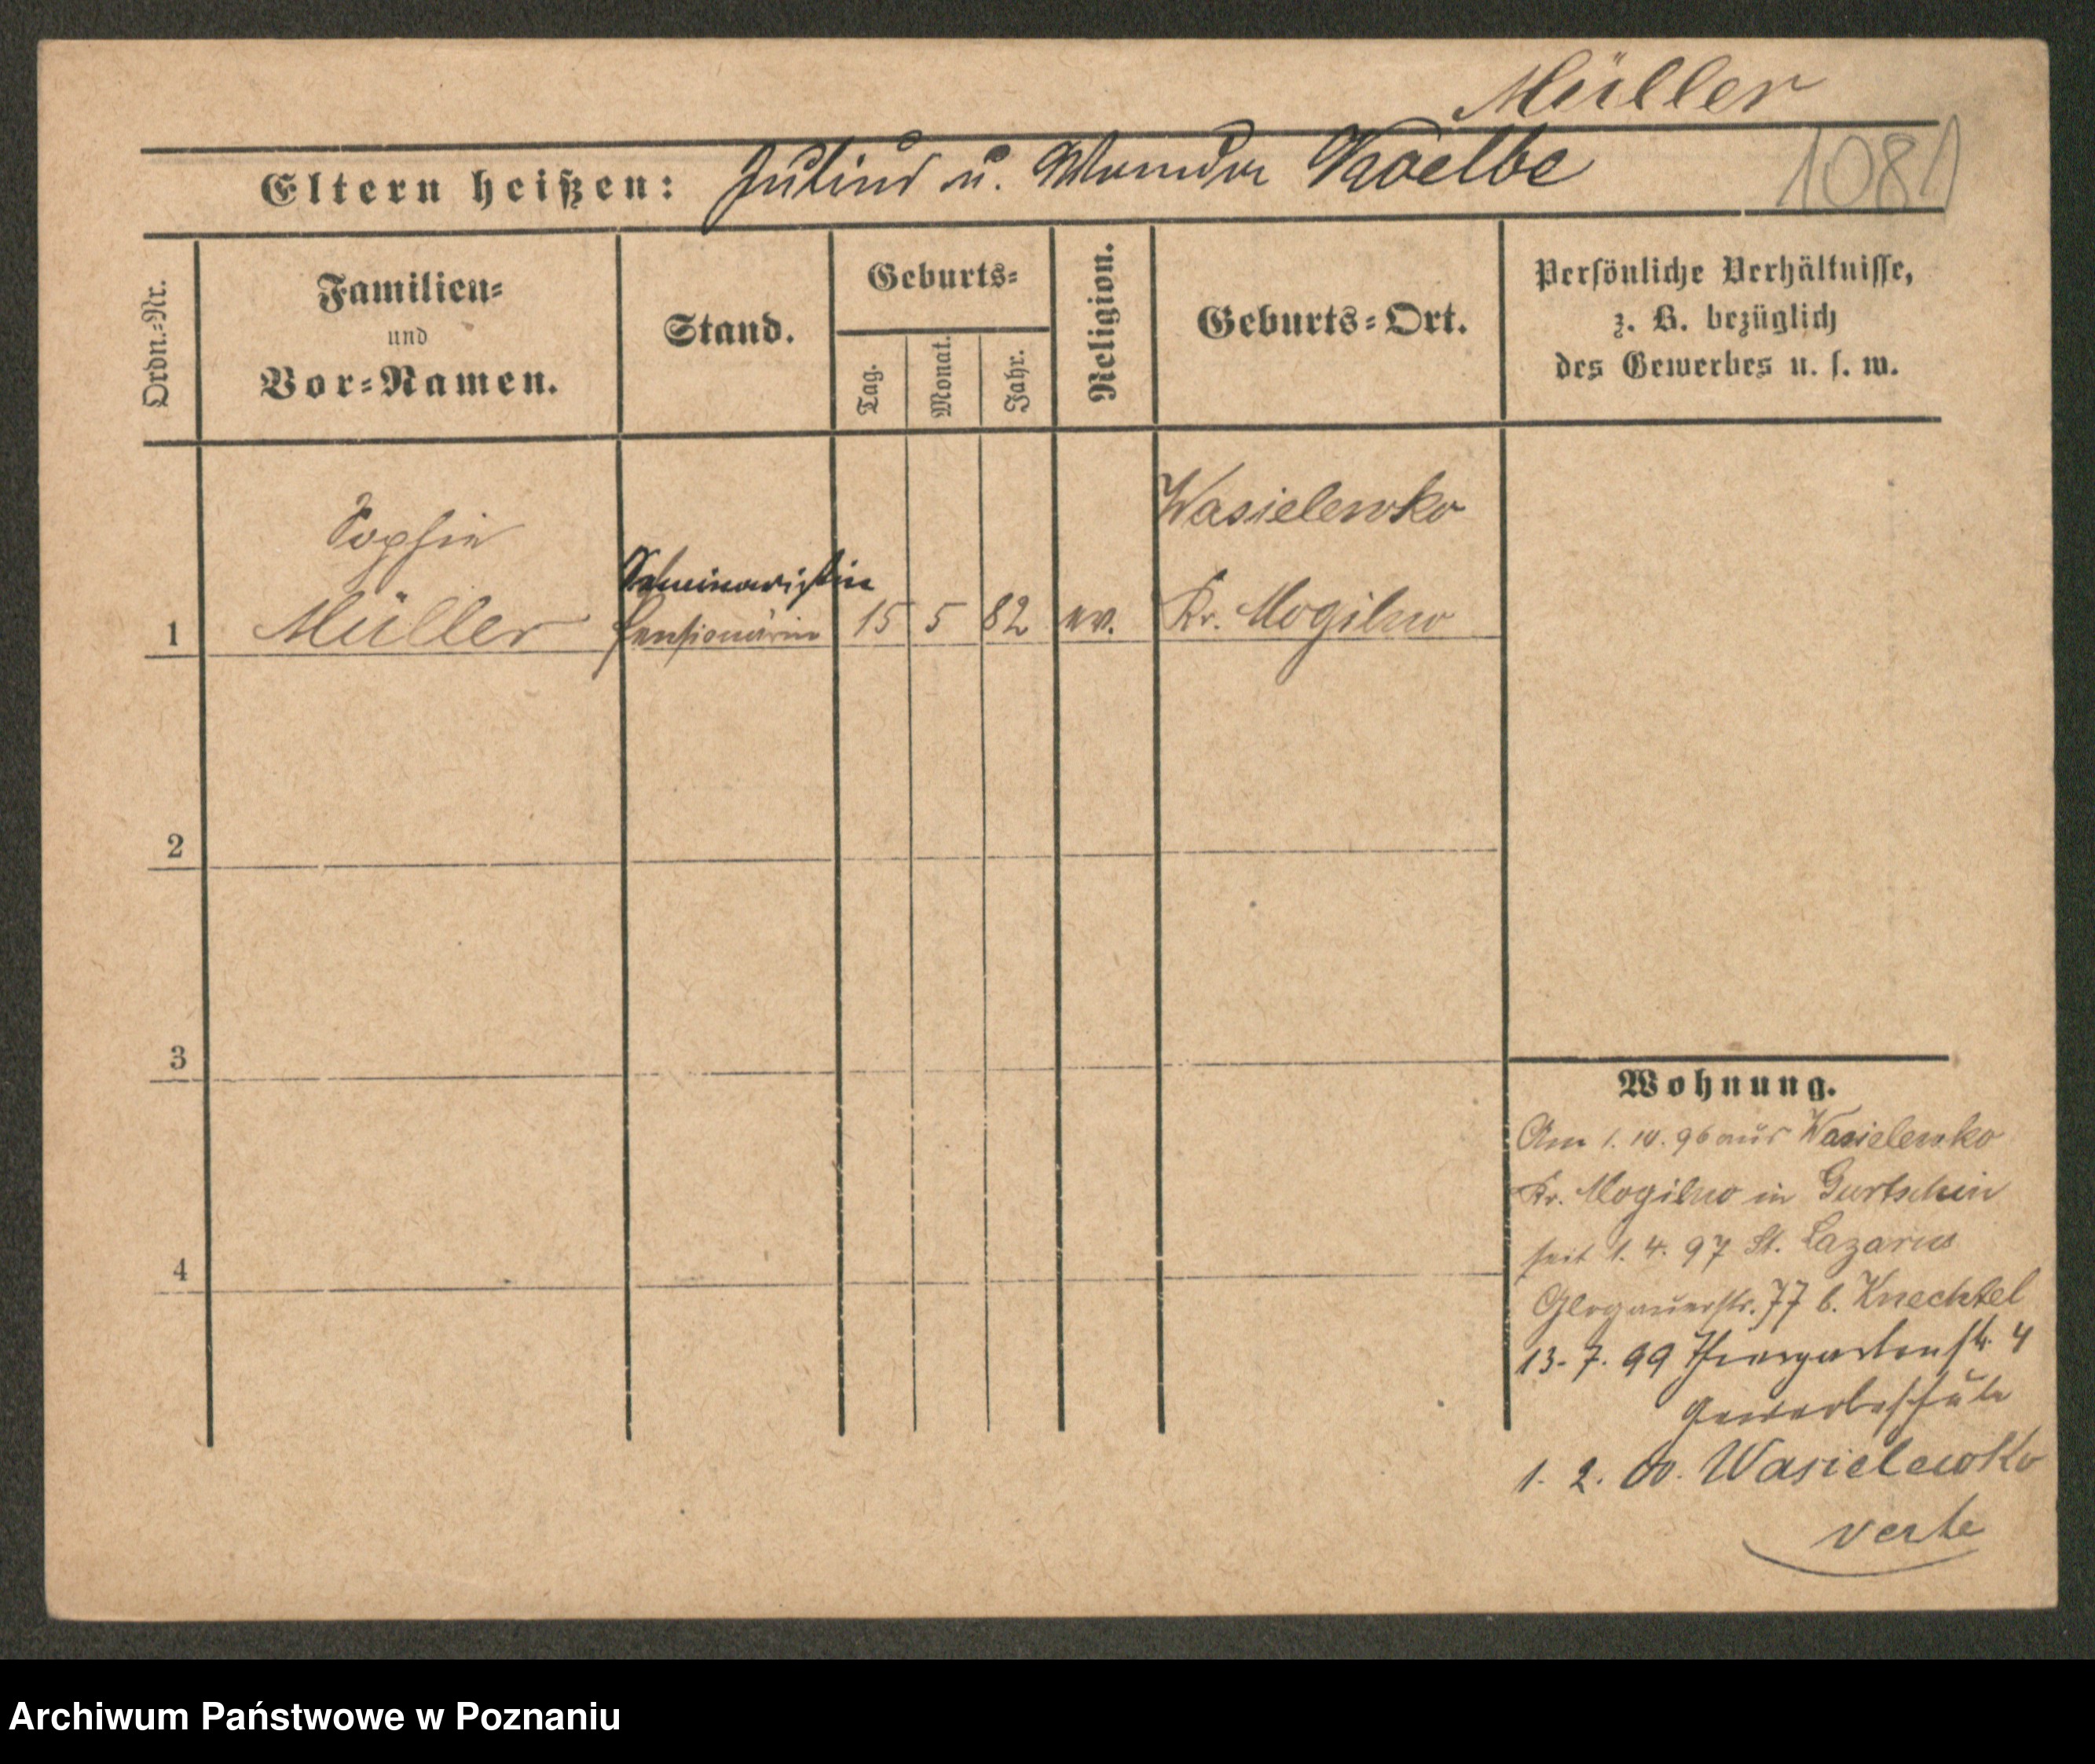 Müller
Eltern heißen: Julius u. Wanda Koelbe
1081
Ordn.-Nr.
Familien-
und
Vor-Namen.
Stand.
Geburts-
Tag.
Monat.
Jahr.
Religion.
Geburts-Ort.
Persönliche Verhältnisse,
z. B. bezüglich
des Gewerbes u. s. w.
Sophie
Müller
Seminaristin
Pensionärin
1
15 5 82 ev.
Wasielewko
Kr. Mogilno
2
3
4
Wohnung.
Am 1. 10. 96 aus Wasielewko
Kr. Mogilno in Gurtschin
seit 1. 4. 97 St. Lazarus
Glogauerstr. 77 b. Knechtel
13. 7. 99 Thiergartenstr. 4
Gewerbeschule
1. 2. 00. Wasielewko
verte
Archiwum Państwowe w Poznaniu